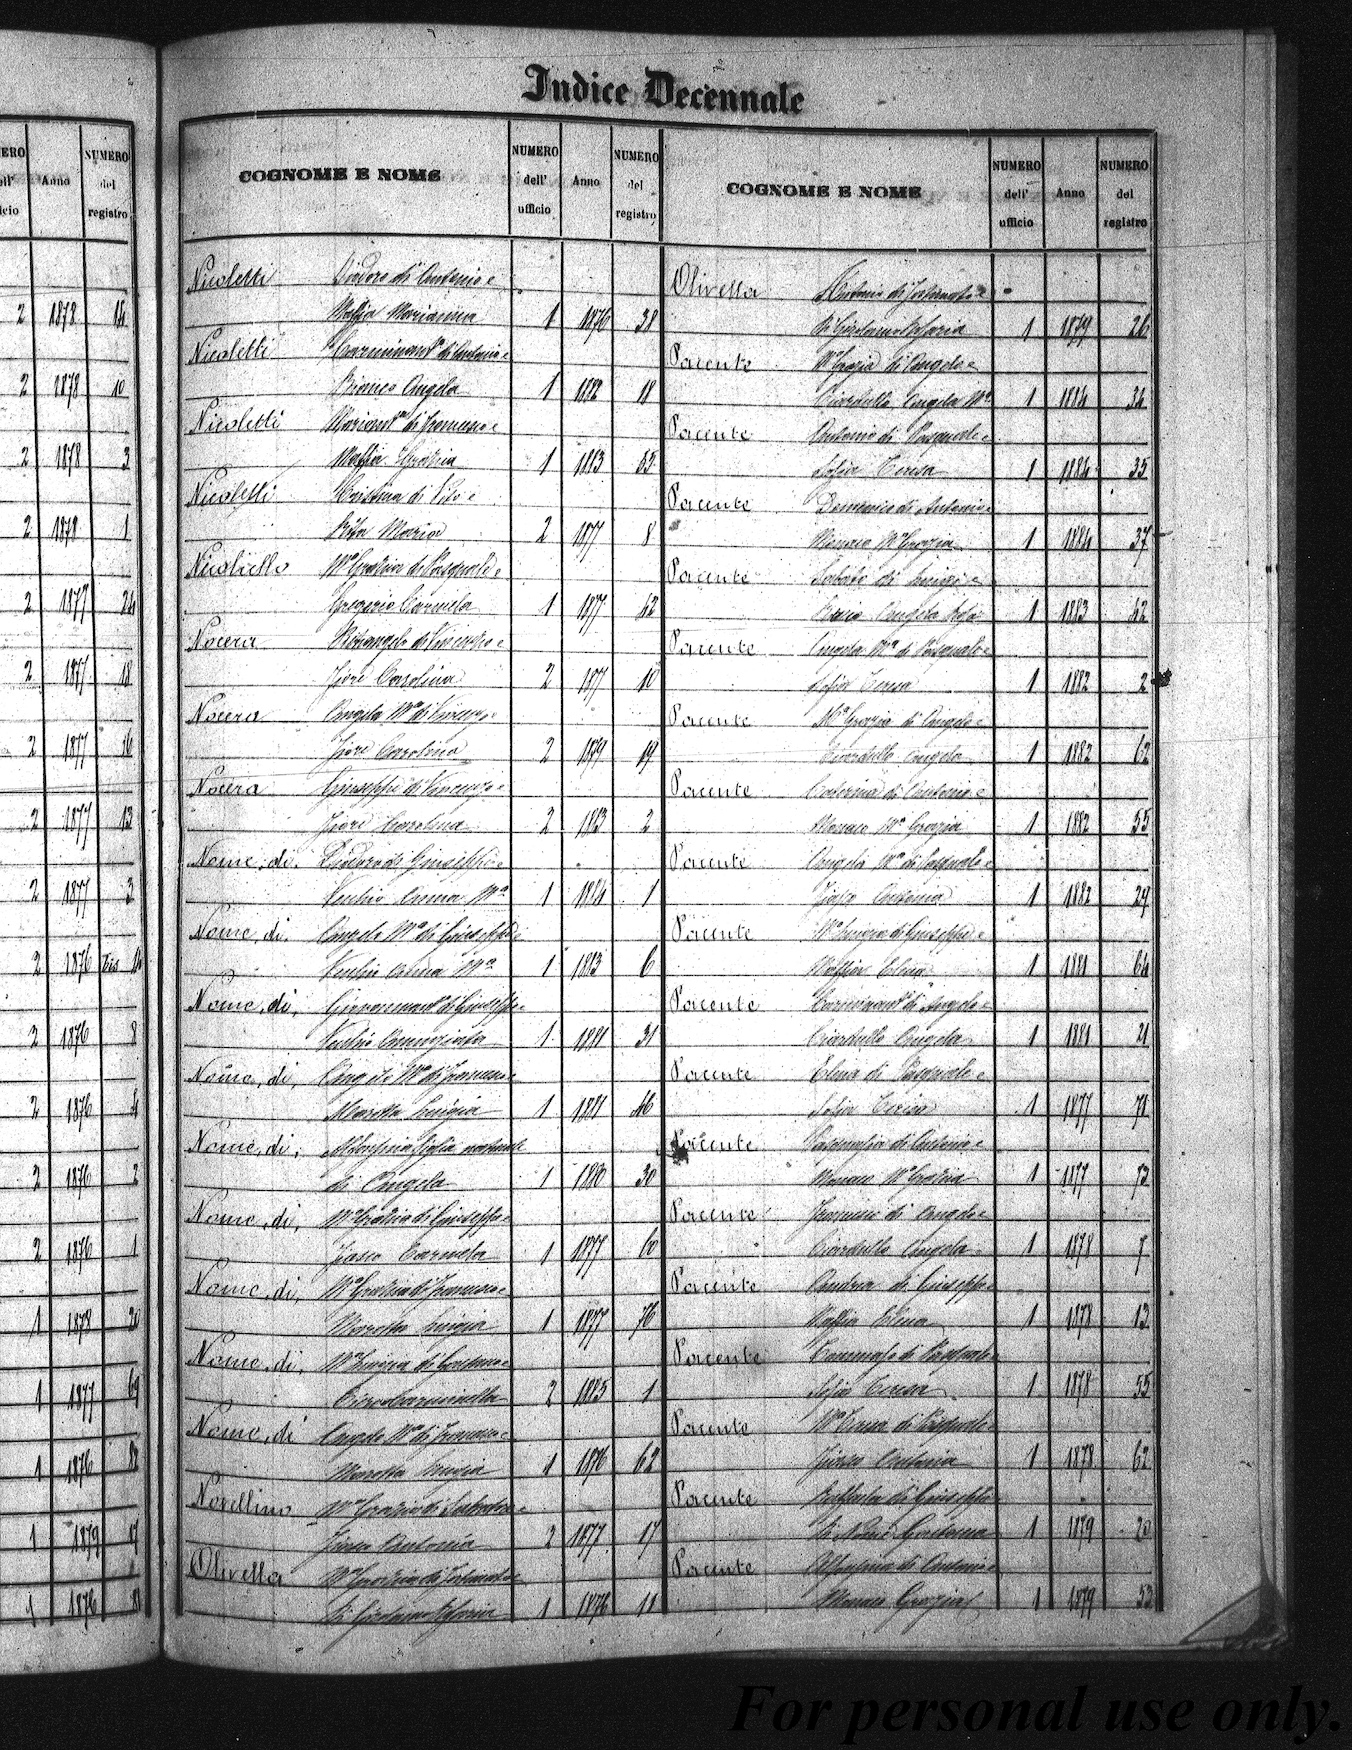 Indice Decennale
NUMERO dell' ufficio
Anno
NUMERO del registro
2 1878 14
2 1878 10
2 1878 3
2 1878 1
2 1877 24
2 1877 18
2 1877 16
2 1877 13
2 1877 3
2 1876 bis
2 1876 8
2 1876 4
2 1876 2
2 1876 1
1 1878 20
1 1877 69
1 1876 82
1 1879 17
1 1876
COGNOME E NOME
NUMERO dell' ufficio
Anno
NUMERO del registro
Nicoletti Isidoro di Antonio e
Maffia Marianna 1 1876 38
Nicoletti Carminant.o di Antonio e
Bianco Angela 1 1882 18
Nicoletti Mariant.a di Francesco e
Maffia Grazia 1 1883 55
Nicoletti Cristina di Vito e
Rita Maria 2 1877 8
Nicoliello Ma Grazia di Pasquale e
Gregorio Carmela 1 1877 42
Nocera di Vincenzo e
Fiore Carolina 2 1877 10
Nocera Angela Ma di Vincenzo e
Fiore Carolina 2 1879 19
Nocera Giuseppe di Vincenzo e
Fiore Carolina 2 1883 2
Nome, di, Isidoro di Giuseppe e
Anna Ma 1 1884 1
Nome, di, Angelo Ma di Giuseppe e
Anna Ma 1 1883 6
Nome, di, Giovannant.o di Giuseppe e
Annunziata 1 1881 31
Nome, di, Angelo Ma di Francesco e
Marotta Luigia 1 1881 46
Nome, di, figlia naturale
di Angela 1 1880 30
Nome, di, Ma Grazia di Giuseppe e
Fasco Carmela 1 1877 60
Nome, di, Ma Grazia di Francesco e
Marotta Luigia 1 1877 76
Nome, di, Ma Luigia di Gaetano e
Carminella 2 1885 1
Nome, di Angelo Ma di Francesco e
Marotta Luigia 1 1876 62
Novellino Ma Grazia di Salvatore e
Fiasco Antonia 2 1877 17
Olivella Ma Grazia di Fortunato e
Di Girolamo Maria 1 1876 11
COGNOME E NOME
NUMERO dell' ufficio
Anno
NUMERO del registro
Olivella Antonio di Fortunato e
Di Girolamo Maria 1 1879 26
Pacente Ma Grazia di Angelo e
Ciardullo Angela Ma 1 1884 34
Pacente Antonio di Pasquale e
Sofia Teresa 1 1884 35
Pacente Domenico di Antonio e
Monaco Ma Grazia 1 1884 37
Pacente Sabato di Luigi e
Angela Rosa 1 1883 42
Pacente Angela Ma di Pasquale e
Sofia Teresa 1 1882 2
Pacente Ma Grazia di Angelo e
Ciardullo Angela 1 1882 62
Pacente Caterina di Antonio e
Monaco Ma Grazia 1 1882 55
Pacente Angela Ma di Pasquale e
Fiasco Antonia 1 1882 29
Pacente Ma Luigia di Giuseppe e
Maffia Elena 1 1881 64
Pacente Carminant.o di Angelo e
Ciardullo Angela 1 1881 21
Pacente Elena di Pasquale e
Sofia Teresa 1 1877 71
Pacente di Antonio e
Monaco Ma Grazia 1 1877 73
Pacente Francesco di Angelo e
Ciardullo Angela 1 1878 7
Pacente Andrea di Giuseppe e
Maffia Elena 1 1878 13
Pacente Tommaso di Pasquale e
Sofia Teresa 1 1878 55
Pacente Ma Teresa di Pasquale e
Fiasco Antonia 1 1878 62
Pacente Raffaela di Giuseppe e
Di Nome Gaetana 1 1879 20
Pacente di Antonio e
Monaco Grazia 1 1879 53
For personal use only.